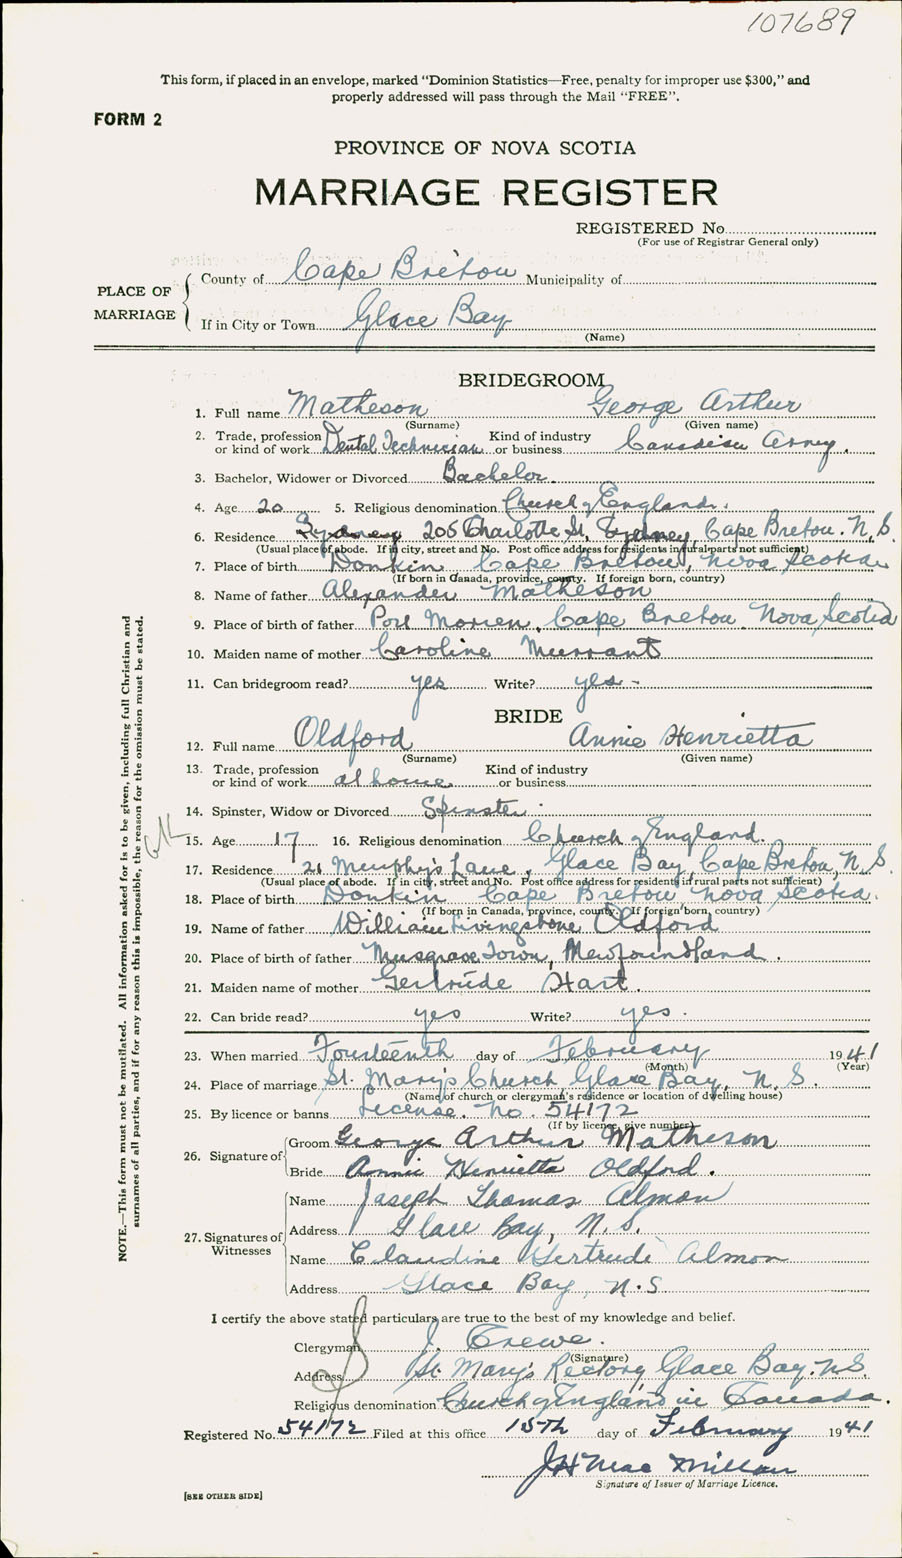 107689
This form, if placed in an envelope, marked "Dominion Statistics—Free, penalty for improper use $300," and
properly addressed will pass through the Mail "FREE".
FORM 2
PROVINCE OF NOVA SCOTIA
MARRIAGE REGISTER
REGISTERED No.
(For use of Registrar General only)
PLACE OF MARRIAGE
County of Cape Breton Municipality of
If in City or Town Glace Bay
(Name)
BRIDEGROOM
1. Full name Matheson George Arthur
(Surname) (Given name)
2. Trade, profession or kind of work Dental Technician Kind of industry or business Canadian Army.
3. Bachelor, Widower or Divorced Bachelor.
4. Age 20 5. Religious denomination Church of England.
6. Residence Sydney 205 Charlotte St. Sydney, Cape Breton. N.S.
(Usual place of abode. If in city, street and No. Post office address for residents in rural parts not sufficient)
7. Place of birth Donkin Cape Breton, Nova Scotia
(If born in Canada, province, county. If foreign born, country)
8. Name of father Alexander Matheson
9. Place of birth of father Port Morien, Cape Breton Nova Scotia
10. Maiden name of mother Caroline Murrant
11. Can bridegroom read? yes Write? yes -
BRIDE
12. Full name Oldford Annie Henrietta
(Surname) (Given name)
13. Trade, profession or kind of work at home Kind of industry or business
14. Spinster, Widow or Divorced Spinster.
15. Age 17 16. Religious denomination Church of England.
17. Residence 21 Murphy's Lane, Glace Bay, Cape Breton, N.S.
(Usual place of abode. If in city, street and No. Post office address for residents in rural parts not sufficient)
18. Place of birth Donkin Cape Breton Nova Scotia.
(If born in Canada, province, county. If foreign born, country)
19. Name of father William Livingstone Oldford
20. Place of birth of father Musgrave Town, Newfoundland.
21. Maiden name of mother Gertrude Hart.
22. Can bride read? yes Write? yes.
23. When married Fourteenth day of February 1941
(Month) (Year)
24. Place of marriage St. Mary's Church Glace Bay, N.S.
(Name of church or clergyman's residence or location of dwelling house)
25. By licence or banns License. No. 54172
(If by licence, give number)
26. Signature of Groom George Arthur Matheson
Bride Annie Henrietta Oldford.
27. Signatures of Witnesses
Name Joseph Thomas Almon
Address Glace Bay, N.S.
Name Claudine Gertrude Almon
Address Glace Bay, N.S
I certify the above stated particulars are true to the best of my knowledge and belief.
Clergyman J. Crewe.
(Signature)
Address St. Mary's Rectory Glace Bay. N.S
Religious denomination Church of England in Canada.
Registered No. 54172 Filed at this office 15th day of February 1941
J H MacMillan
Signature of Issuer of Marriage Licence.
[SEE OTHER SIDE]
NOTE.—This form must not be mutilated. All information asked for is to be given, including full Christian and
surnames of all parties, and if for any reason this is impossible, the reason for the omission must be stated.